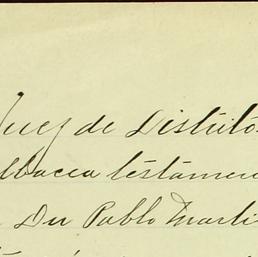 Juez de Distrito
lbacea testamen
Dn Pablo Marti